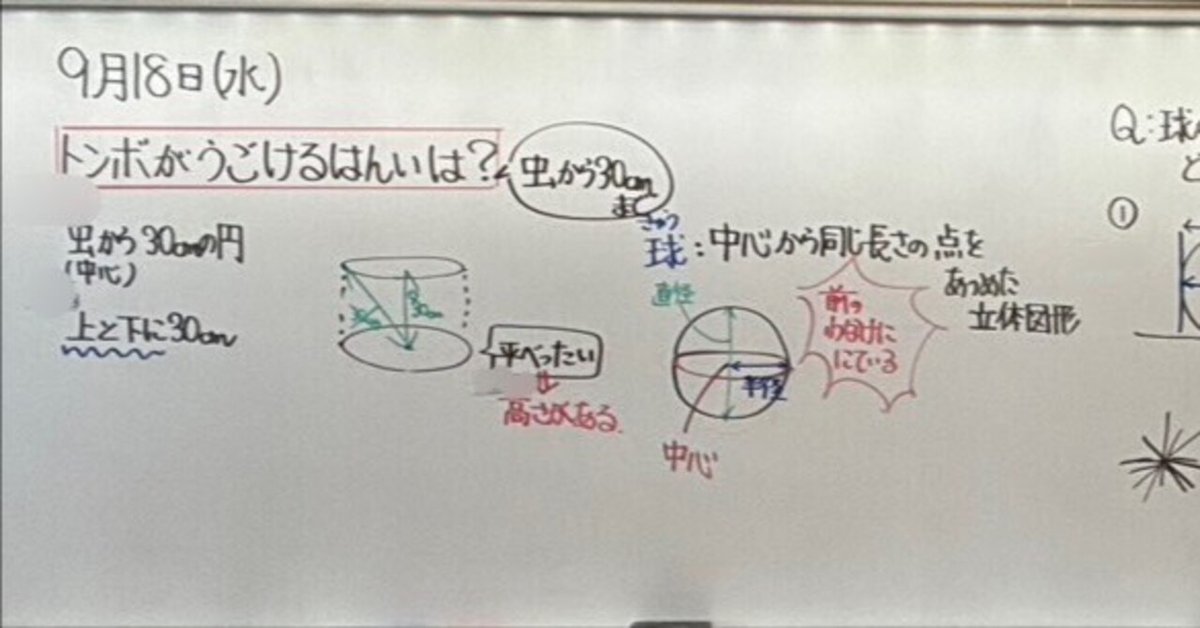 9月18日(水)
トンボがうごけるはんいは?
虫から30cm
まで
虫から30cmの円
(中心)
上と下に30cm
30cm
30cm
平べったい
高さがある.
きゅう
球:中心から同じ長さの点を
あつめた
立体図形
直径
半径
中心
前の
わなげに
にている
Q:球
ど
①